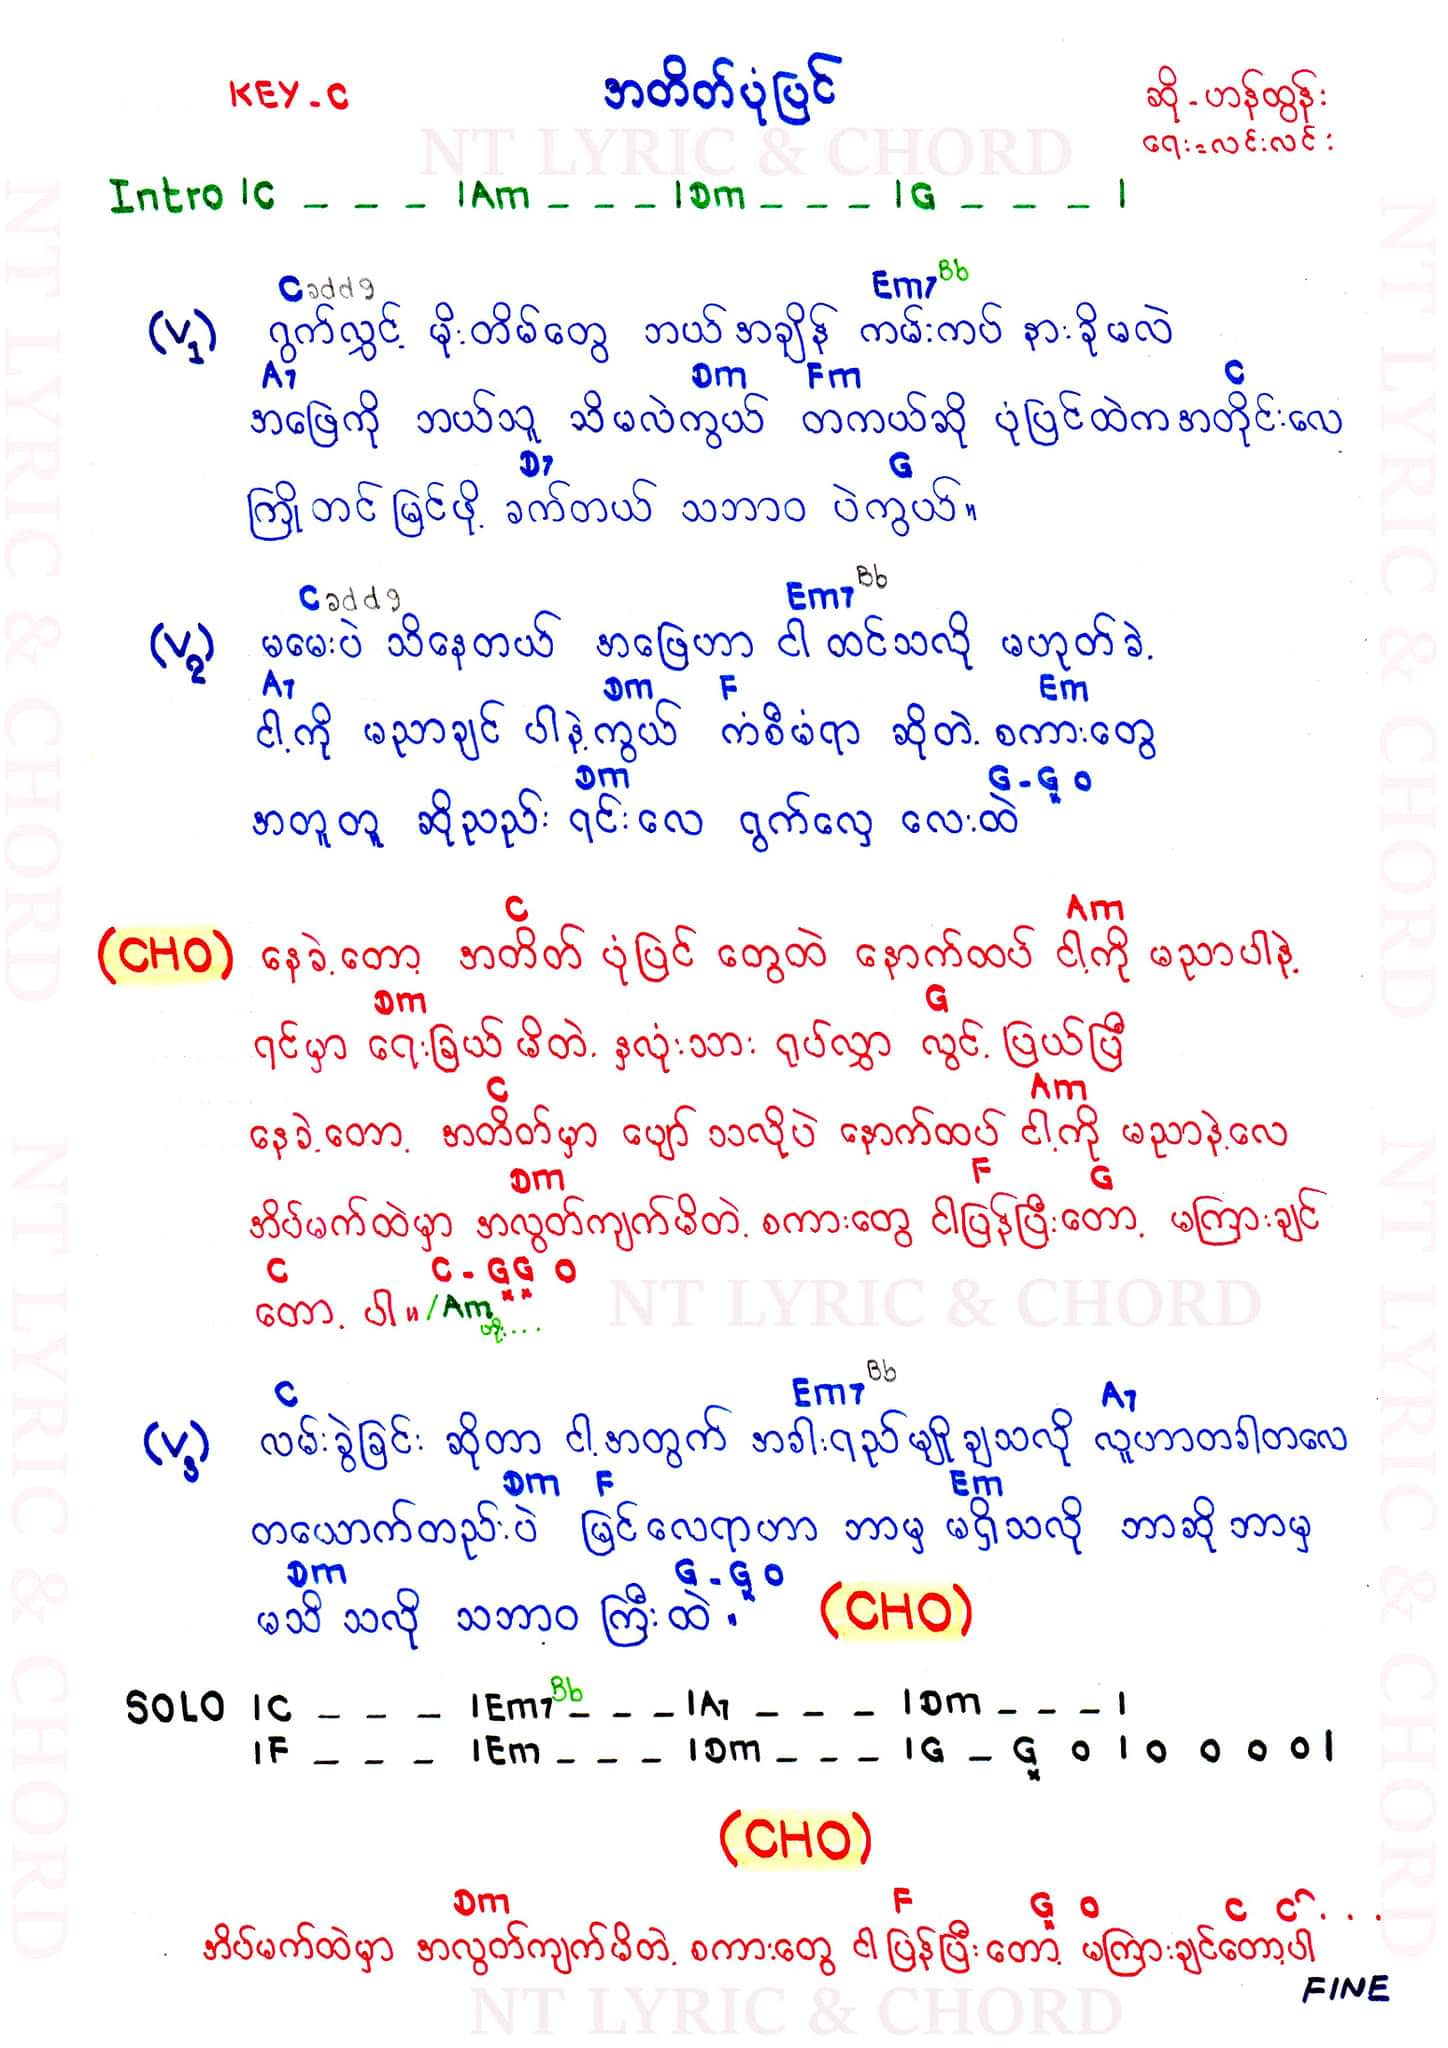 KEY - C
အတိတ်ပုံပြင်
ဆို - ဟန်ထွန်း
ရေး = လင်းလင်း
NT LYRIC & CHORD
Intro |C _ _ _ |Am _ _ _ |Dm _ _ _ |G _ _ _ |
Cadd9 Em7 Bb
(V1) ရွက်လွှင့် မိုးတိမ်တွေ ဘယ်အချိန် ကမ်းကပ် နားခိုမလဲ
A7 Dm Fm C
အဖြေကို ဘယ်သူ သိမလဲကွယ် တကယ်ဆို ပုံပြင်ထဲကအတိုင်းလေ
D7 G
ကြိုတင်မြင်ဖို့ ခက်တယ် သဘာဝ ပဲကွယ်။
Cadd9 Em7 Bb
(V2) မမေးပဲ သိနေတယ် အဖြေဟာ ငါထင်သလို မဟုတ်ခဲ့
A7 Dm F Em
ငါ့ကို မညာချင် ပါနဲ့ကွယ် ကံစီမံရာ ဆိုတဲ့ စကားတွေ
Dm G - G 0
အတူတူ ဆိုညည်း ရင်းလေ ရွက်လှေ လေးထဲ
C Am
(CHO) နေခဲ့တော့ အတိတ် ပုံပြင် တွေထဲ နောက်ထပ် ငါ့ကို မညာပါနဲ့
Dm G
ရင်မှာ ရေးခြယ် မိတဲ့ နှလုံးသား ရုပ်လွှာ လွင့် ပြယ်ပြီ
C Am
နေခဲ့တော့ အတိတ်မှာ ပျော် သလိုပဲ နောက်ထပ် ငါ့ကို မညာနဲ့လေ
Dm F G
အိပ်မက်ထဲမှာ အလွတ်ကျက်မိတဲ့ စကားတွေ ငါပြန်ပြီးတော့ မကြားချင်
C C - G G 0
တော့ ပါ။ /Am
NT LYRIC & CHORD
C Em7 Bb A7
(V3) လမ်းခွဲခြင်း ဆိုတာ ငါ့အတွက် အခါးရည်မျိုချသလို လူဟာတခါတလေ
Dm F Em
တယောက်တည်းပဲ မြင်လေရာဟာ ဘာမှ မရှိသလို ဘာဆိုဘာမှ
Dm G - G 0
မသိ သလို သဘာဝ ကြီးထဲ။ (CHO)
SOLO |C _ _ _ |Em7 Bb _ _ _ |A7 _ _ _ |Dm _ _ _ |
|F _ _ _ |Em _ _ _ |Dm _ _ _ |G _ G 0 | 0 0 0 0 |
(CHO)
Dm F G 0 C C ...
အိပ်မက်ထဲမှာ အလွတ်ကျက်မိတဲ့ စကားတွေ ငါပြန်ပြီးတော့ မကြားချင်တော့ပါ
FINE
NT LYRIC & CHORD
NT LYRIC & CHORD
NT LYRIC & CHORD
NT LYRIC & CHORD
NT LYRIC & CHORD